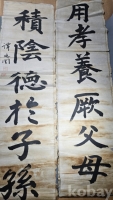 用孝養厥父母
積陰德於子孫
kobay